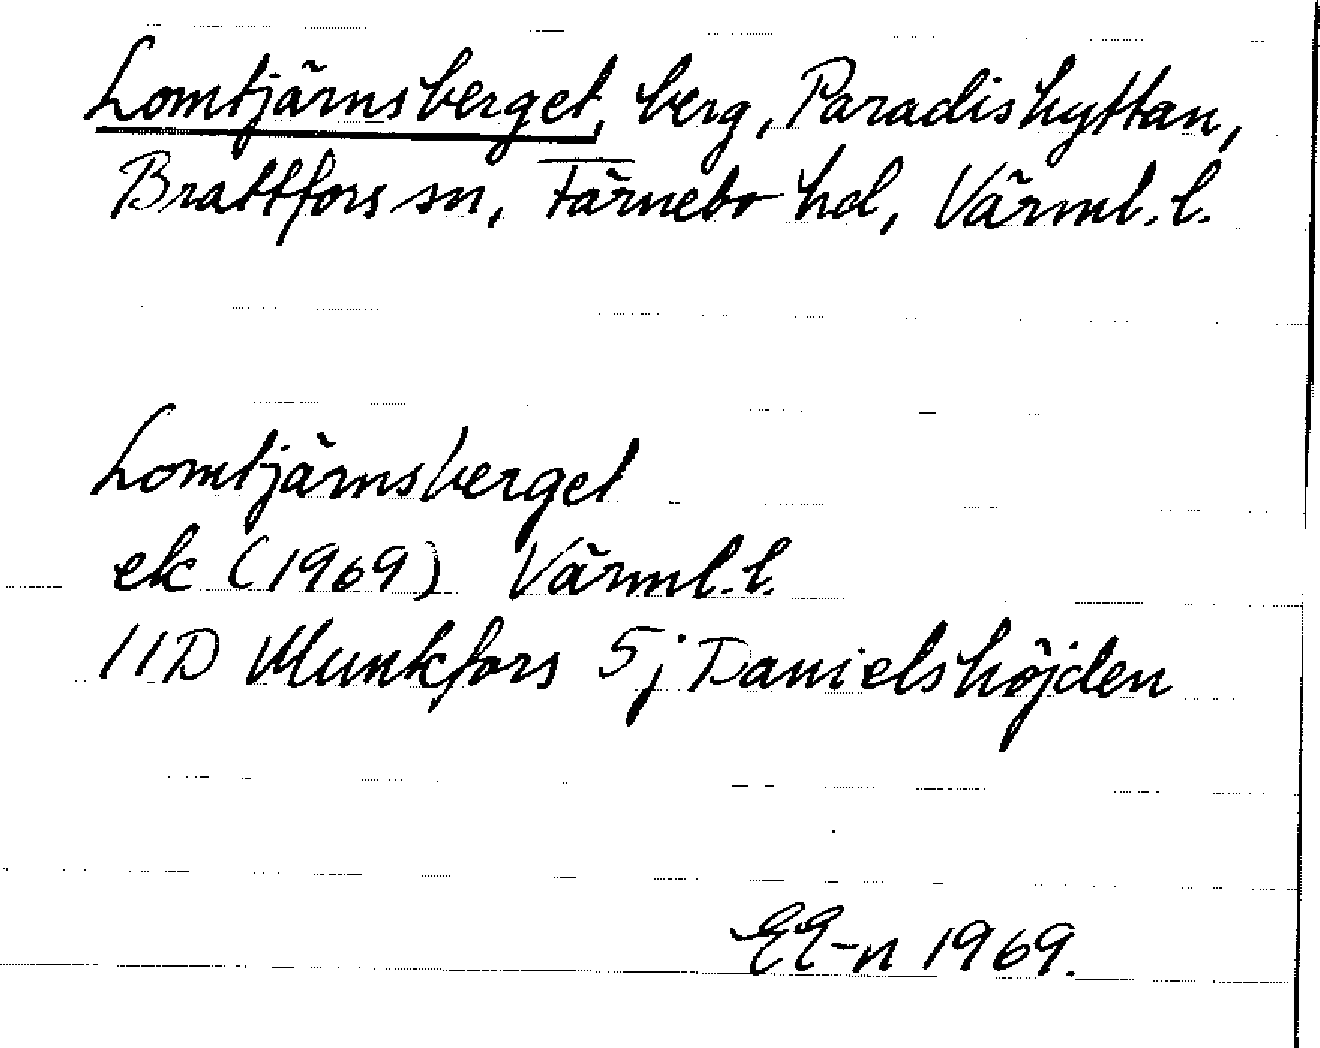 Lomtjärnsberget, berg, Paradishyttan,
Brattfors sn, Färnebo hd, Värml. l.
Lomtjärnsberget
ek (1969) Värml. l.
11D Munkfors 5j Danielshöjden
EE-n 1969.